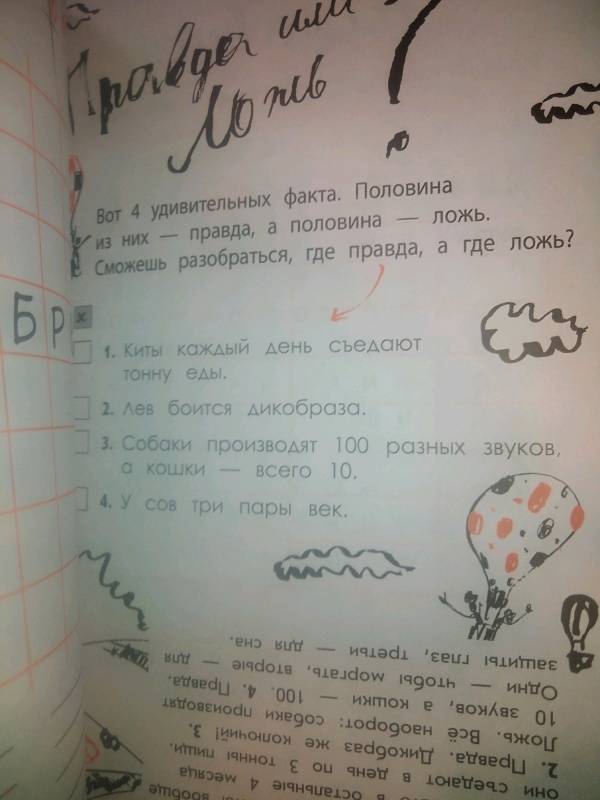 Правда или
Ложь ?
Вот 4 удивительных факта. Половина
из них — правда, а половина — ложь.
Сможешь разобраться, где правда, а где ложь?
Б Р х
1. Киты каждый день съедают
тонну еды.
2. Лев боится дикобраза.
3. Собаки производят 100 разных звуков,
а кошки — всего 10.
4. У сов три пары век.
вообще
в остальные 4 месяца
они съедают в день по 3 тонны пищи.
2. Правда. Дикобраз же колючий! 3.
Ложь. Всё наоборот: собаки производят
10 звуков, а кошки — 100. 4. Правда.
Одни — чтобы моргать, вторые — для
защиты глаз, третьи — для сна.